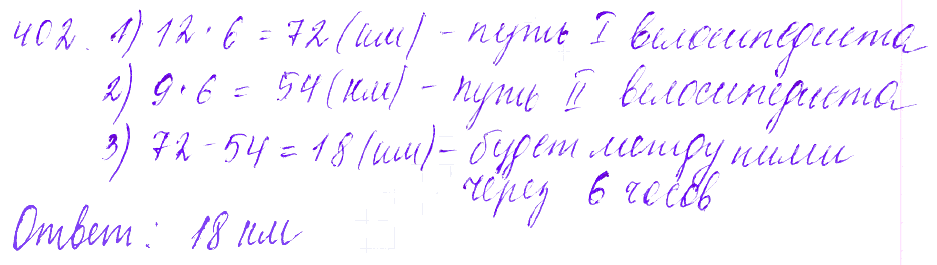 402. 1) 12 · 6 = 72 (км) - путь I велосипедиста
2) 9 · 6 = 54 (км) - путь II велосипедиста
3) 72 - 54 = 18 (км) - будет между ними
через 6 часов
Ответ: 18 км